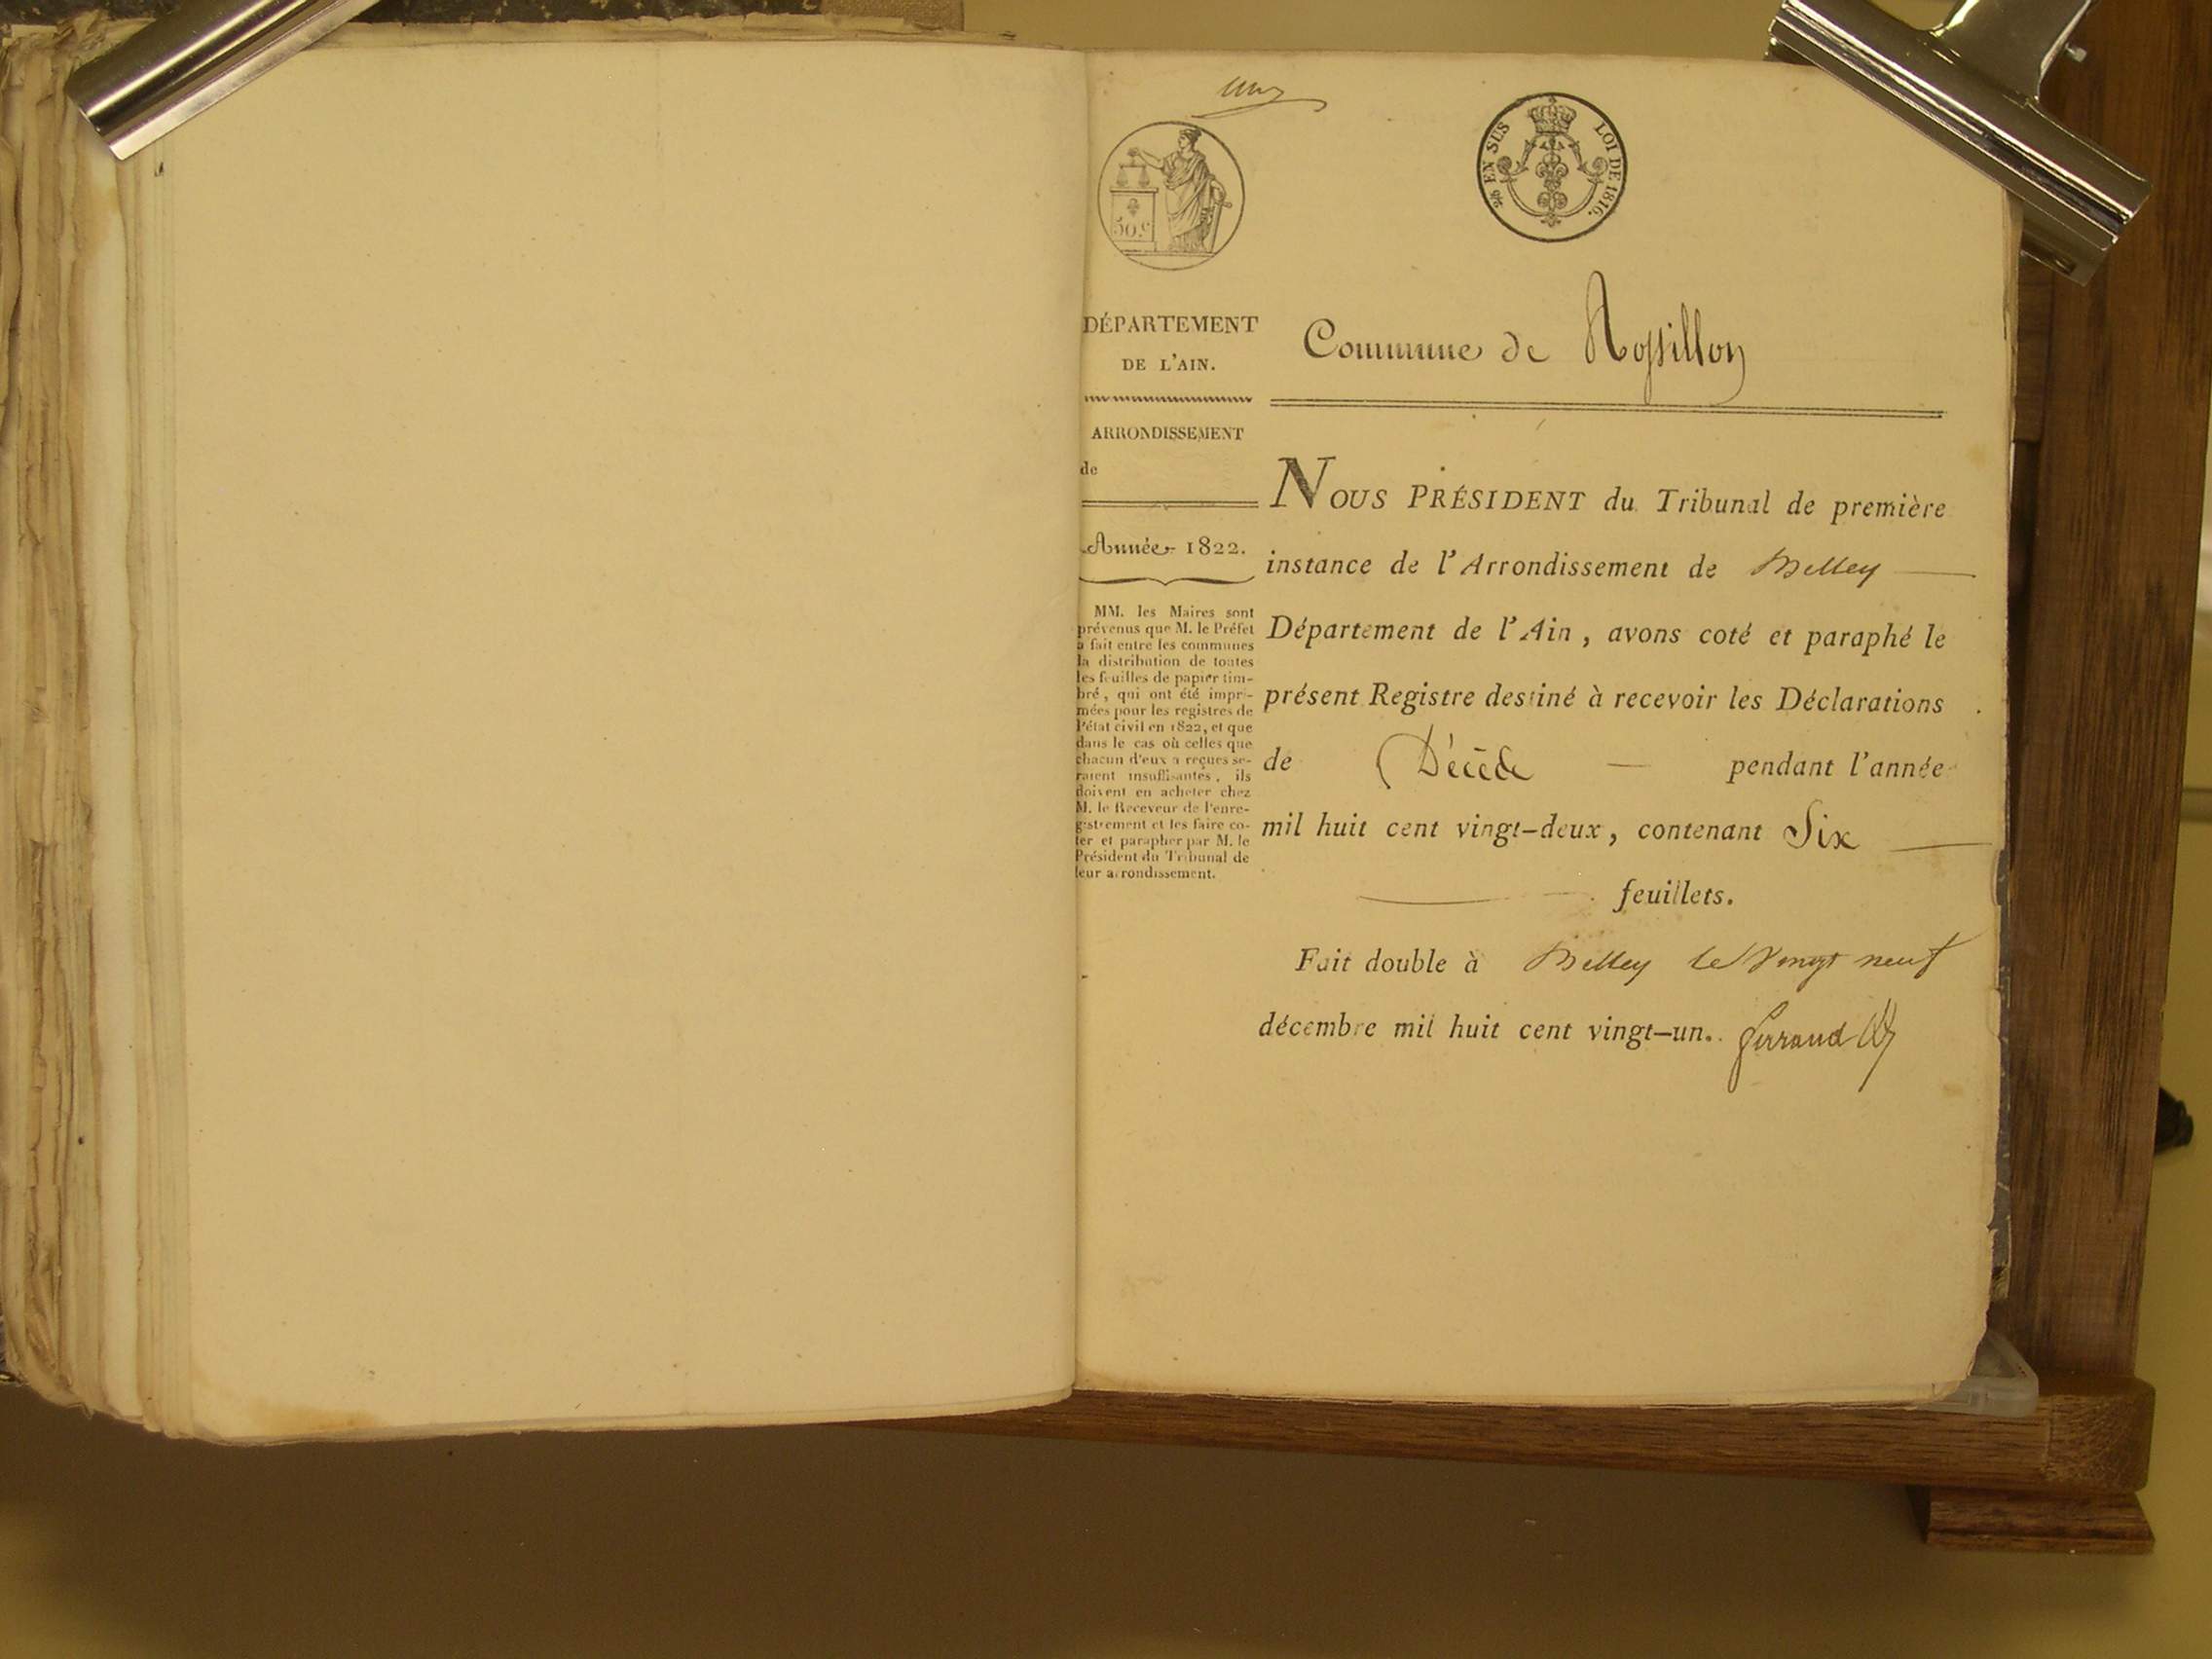 50.c
EN SUS LOI DE 1816.
DÉPARTEMENT
DE L'AIN.
Commune de Rossillon
ARRONDISSEMENT
de
Année 1822.
MM. les Maires sont
prévenus que M. le Préfet
a fait entre les communes
la distribution de toutes
les feuilles de papier tim-
bré, qui ont été impri-
mées pour les registres de
l'état civil en 1822, et que
dans le cas où celles que
chacun d'eux a reçues se-
raient insuffisantes, ils
doivent en acheter chez
M. le Receveur de l'enre-
gistrement et les faire co-
ter et parapher par M. le
Président du Tribunal de
leur arrondissement.
NOUS PRÉSIDENT du Tribunal de première
instance de l'Arrondissement de Belley
Département de l'Ain, avons coté et paraphé le
présent Registre destiné à recevoir les Déclarations
de Décède pendant l'année
mil huit cent vingt-deux, contenant Six
feuillets.
Fait double à Belley le vingt neuf
décembre mil huit cent vingt-un.